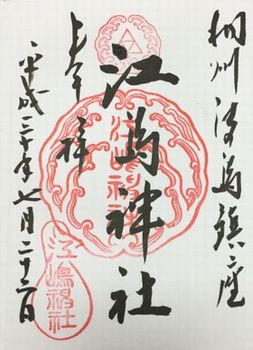 相州江島鎮座
江島神社
上午拝
平成三十年七月二十二日
江嶋神社
江嶋神社